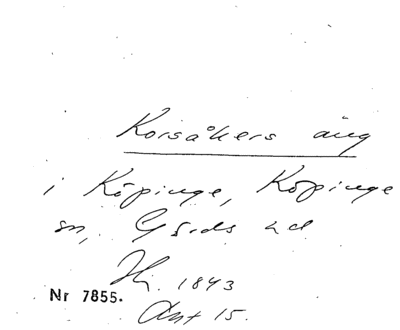 Korsåkers äng
i Köpinge, Köpinge
sn, Gärds hd
Hi. 1843
Nr 7855.
Akt 15.